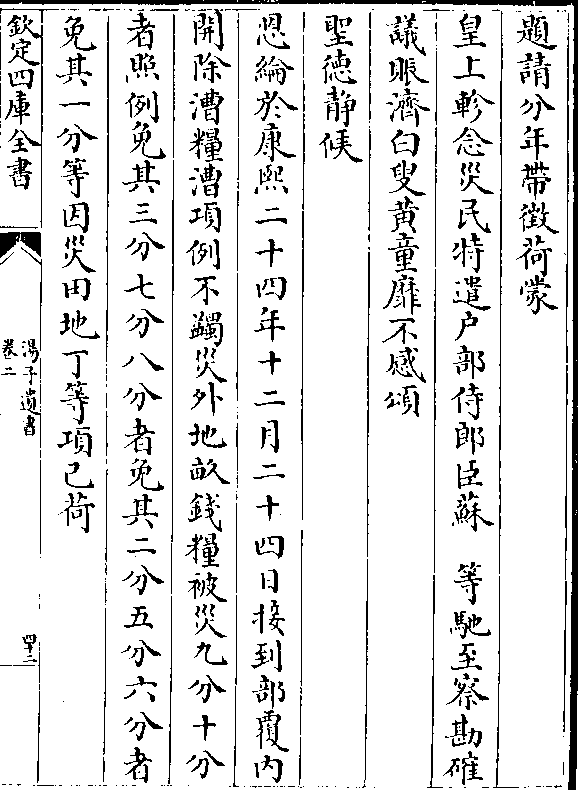 題請分年帶徵荷蒙
皇上軫念災民特遣户部侍郎臣蘇　等馳至察勘確
議賑濟白叟黄童靡不感頌
聖德静候
恩綸於康熙二十四年十二月二十四日接到部覆内
開除漕糧漕項例不蠲災外地畝錢糧被災九分十分
者照例免其三分七分八分者免其二分五分六分者
免其一分等因災田地丁等項已荷
欽定四庫全書
湯子遺書
卷二
四十二